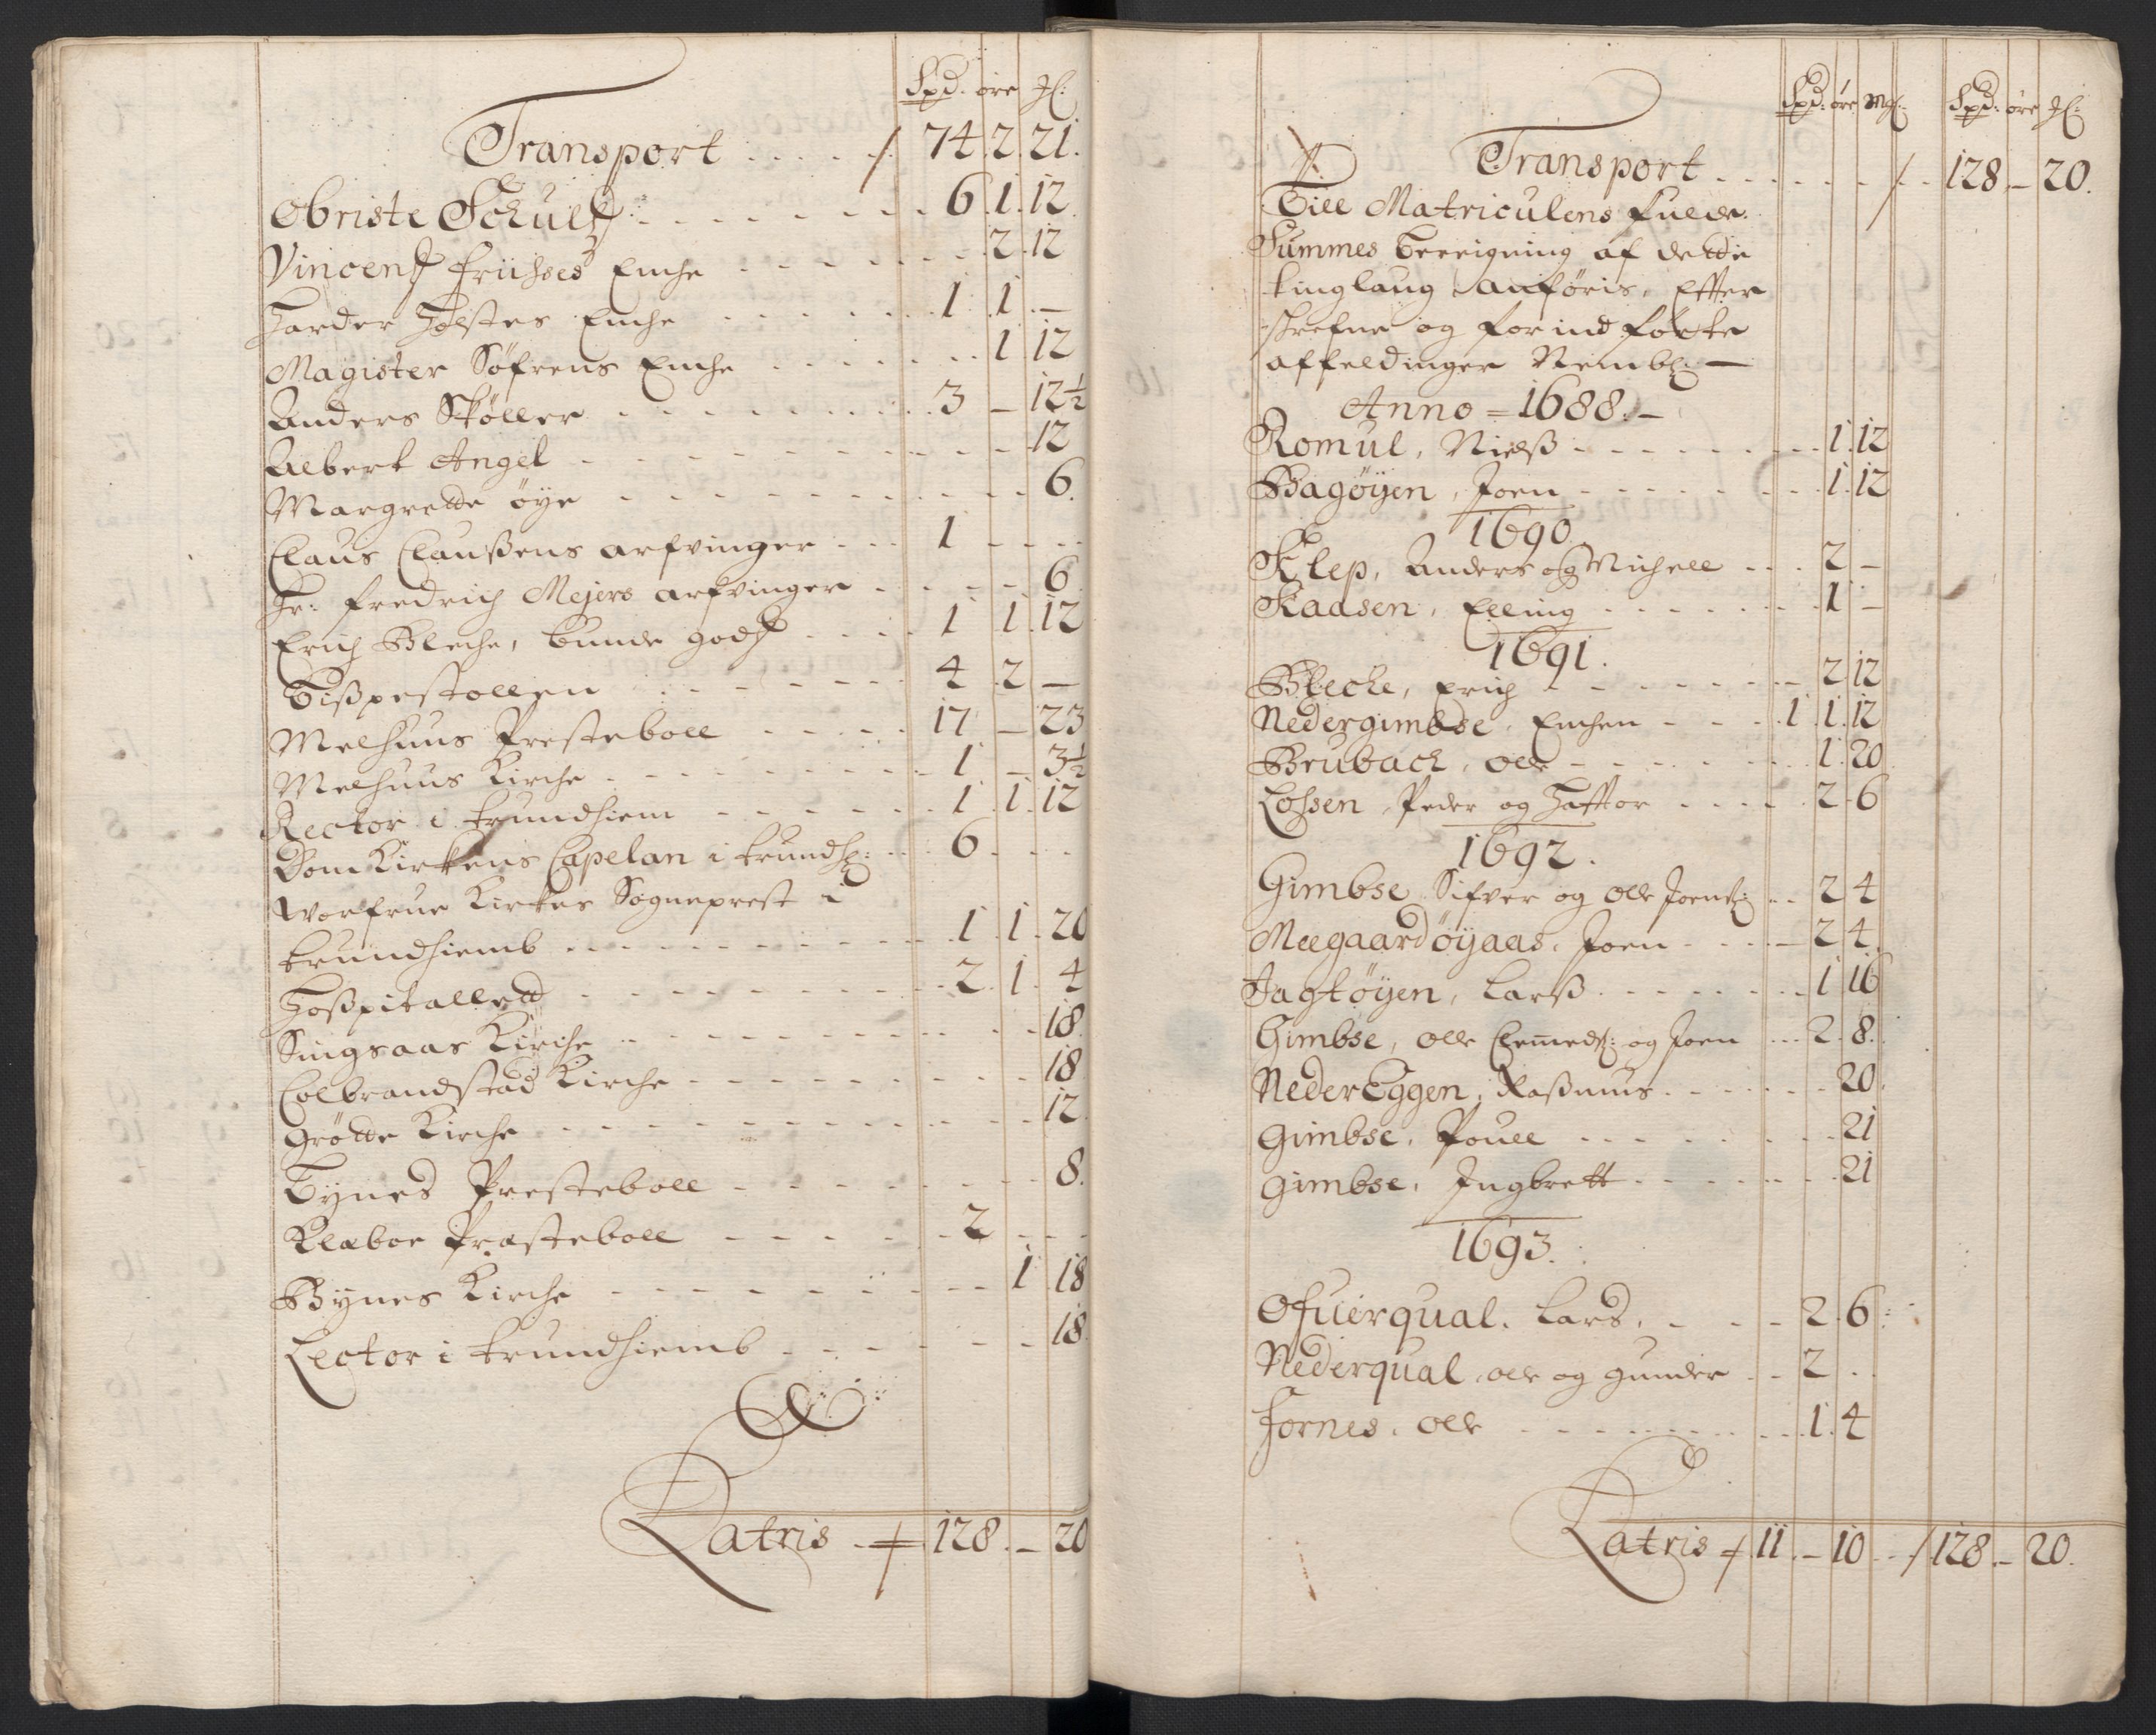 Spd. öre ɱl:
Transport ..... / 74. 2. 21.
Obriste Schultz: - - - 6. 1. 12.
Vincentz Friisses Enche - - - 2. 12
Harder Holstes Enche - - - 1. 1. —
Magister Söfrens Enche - - - 1. 12
Anders Sköller - - - 3 — 12½
Albert Angel - - - 12
Margrette öye - - - 6.
Claus Claußens arfvinger - - - 1 - - -
Hr: Fredrich Mejers arfvinger - - - 6.
Erich Bleche, bunde godtz - - - 1. 1. 12
Tißpestollen - - - 4. 2 —
Melhuus Presteboll - - - 17 — 23
Melhuus Kirche - - - 1 — 3½
Rector i trundhiem - - - 1. 1. 12
Dom Kirkens Capelan i trundh: - - 6. - -
Worfrue Kirkes Sogneprest i
trundhiemb - - - 1. 1. 20
Hoßpitallet - - - 2. 1. 4
Singsaas Kirche - - - 18.
Colbrandstad Kirche - - - 18.
Grötte Kirche - - - 12.
Bynes Presteboll - - - 8.
Klæboe Præsteboll - - - 2 - -
Bynes Kirche - - - 1. 18
Lector i trundhiemb - - - 18.
Latris / 128. — 20
Spd: öre Mɱl: Spd: öre ɱl:
Transport - - - / - - 128 — 20.
Till Matriculens fulde
Summes bereigning af dette
tinglaug anföris, Efter
schrefne og for indförte
affeldinger Nembl: —
Anno = 1688. —
Romul, Nielß - - - 1. 12
Bagöyen, Joen - - - 1. 12
1690.
Klep, Anders og Michell - - - 2 —
Kaasen, Elling - - - 1 —
1691.
Bleche, Erich - - - 2. 12
Nedergimbse, Enchen - - - 1. 1. 12
Brubach, Olle - - - 1. 20
Lossen, Peder og Haftor - - - 2. 6
1692.
Gimbse Sifver og Olle Joens: - - 2. 4
Meegaard öyaas, Joen - - - 2. 4.
Jagtöyen, Larß - - - 1. 16
Gimbse, Olle Clemeds: og Joen - - 2. 8.
Neder Eggen, Raßmus - - - 20.
Gimbse, Pouell - - - 21
Gimbse, Ingbrett - - - 21
1693.
Ofuerqual, Lars, - - - 2. 6:
Nederqual, olle og gunder - - 2. -
Fornes, olle - - - 1. 4
Latris / 11. — 10 - - / 128. — 20.